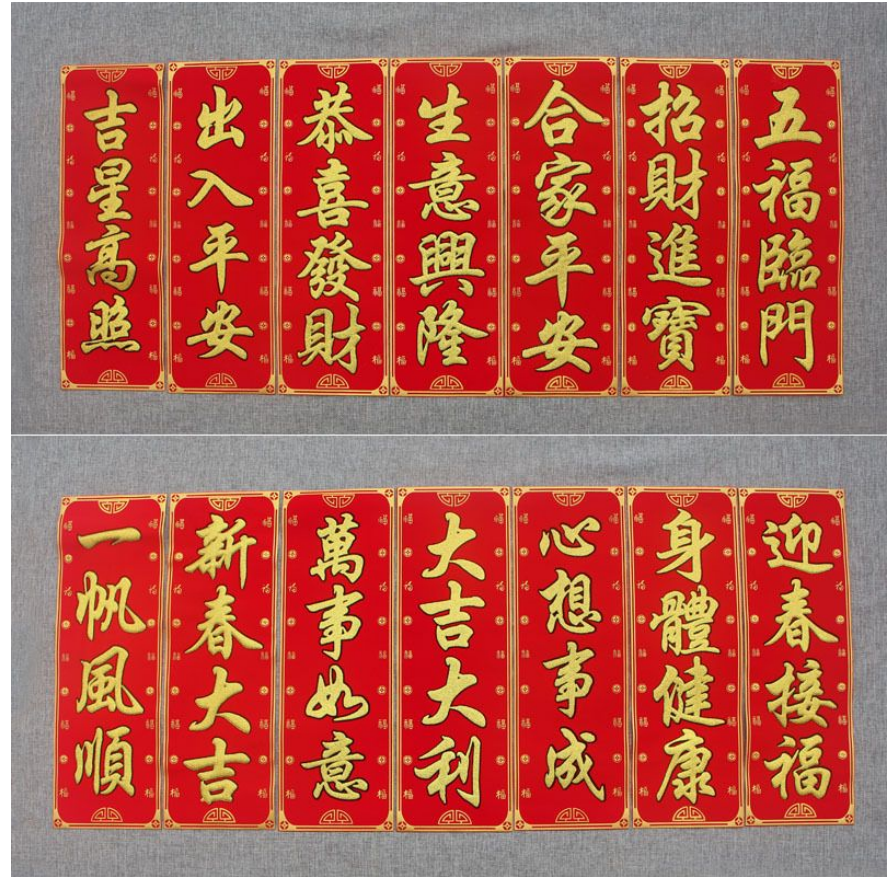 吉星高照
出入平安
恭喜發財
生意興隆
合家平安
招財進寶
五福臨門
一帆風順
新春大吉
萬事如意
大吉大利
心想事成
身體健康
迎春接福